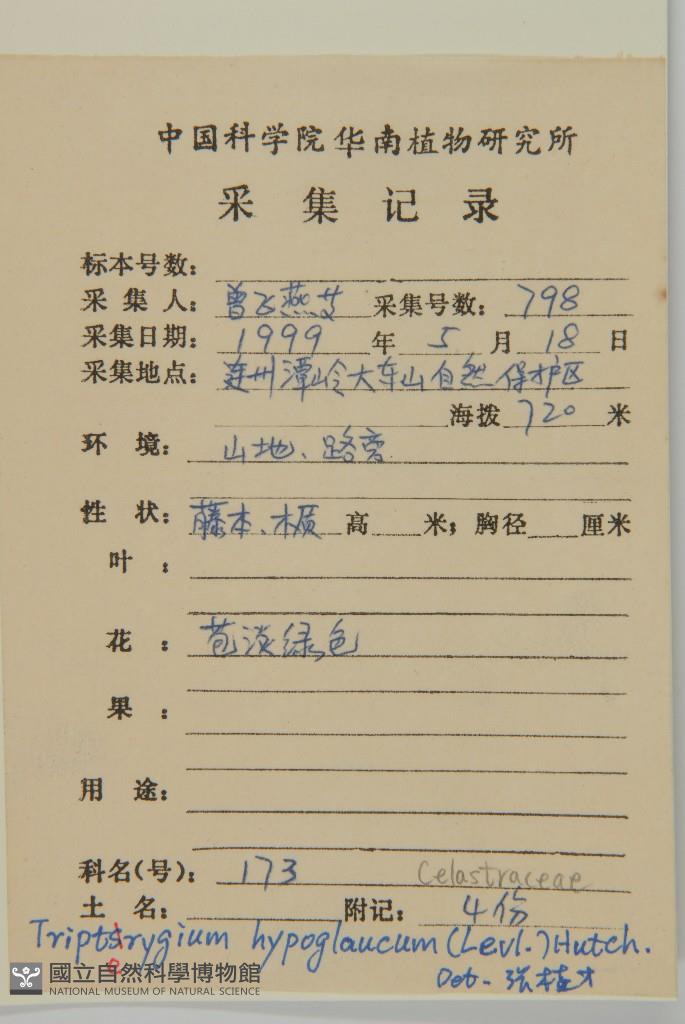 中国科学院华南植物研究所
采集记录
标本号数：
采集人：曾飞燕 采集号数：798
采集日期：1999年5月18日
采集地点：连州潭岭大东山自然保护区
海拨720米
环境：山地、路旁
性状：藤本、木质 高 米；胸径 厘米
叶：
花：苞淡绿色
果：
用途：
科名(号)：173 Celastraceae
土名： 附记：4份
Tripterygium hypoglaucum (Levl.) Hutch.
Det. 张桂才
國立自然科學博物館
NATIONAL MUSEUM OF NATURAL SCIENCE